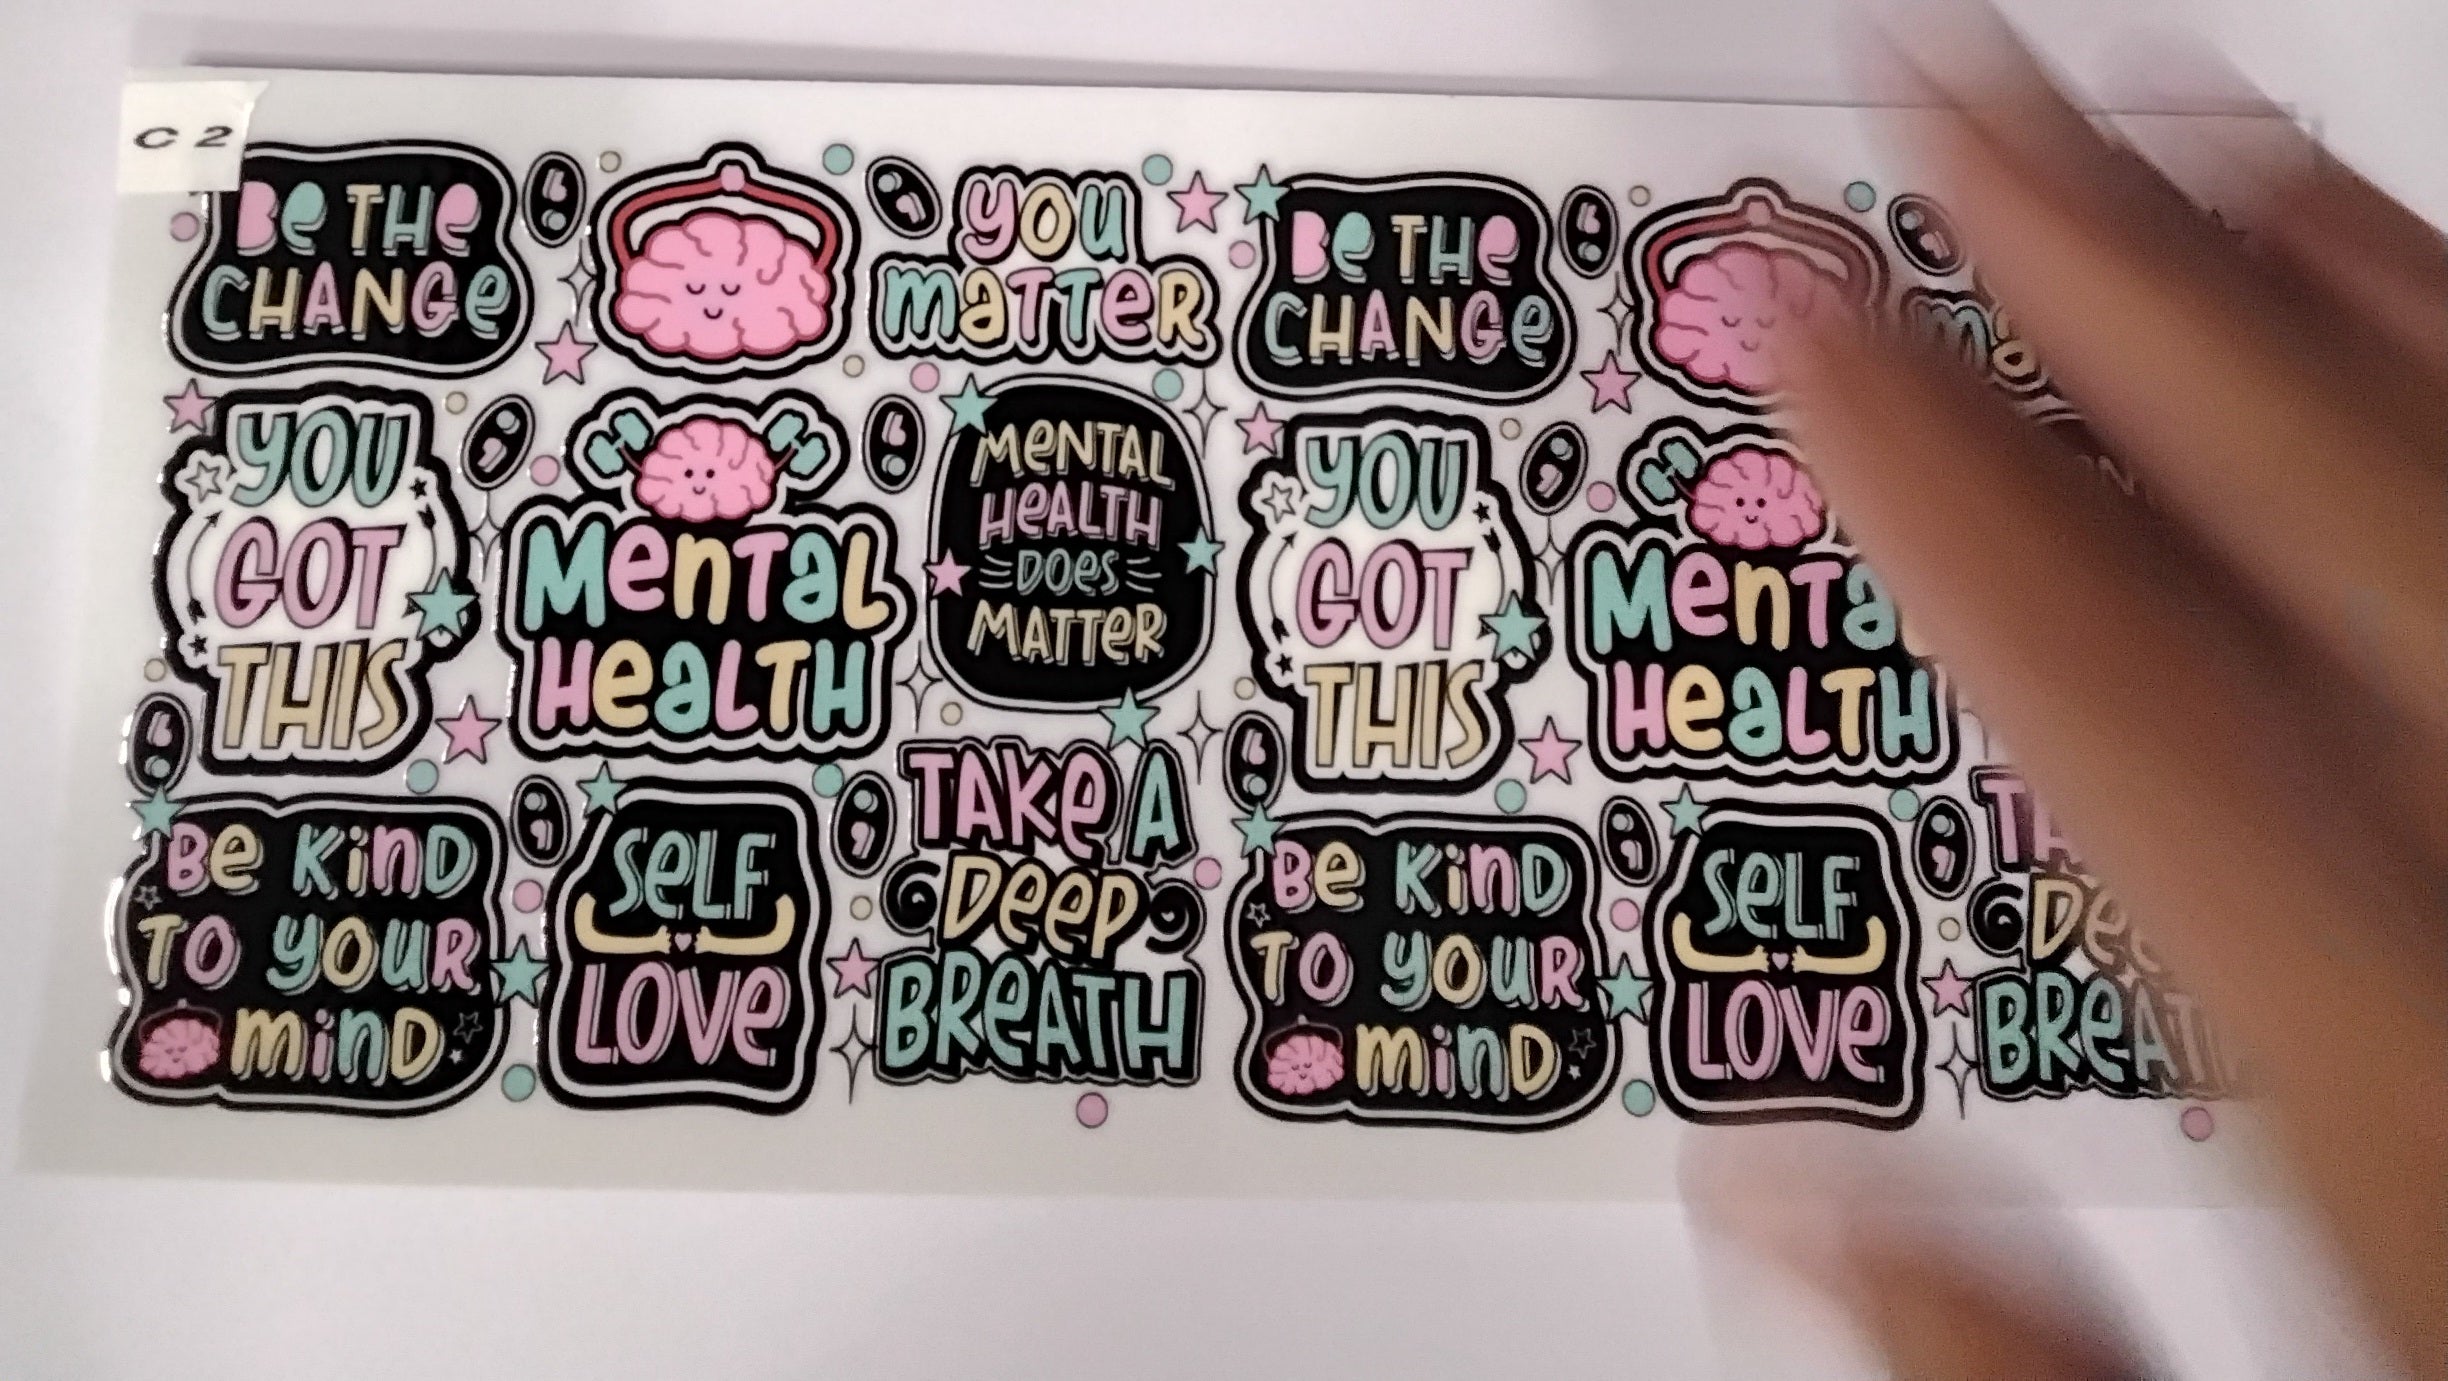 C 2
Be THe
CHANGe
you
maTTeR
Be THe
CHANGe
YOU
GOT
THIS
MenTal
HealTH
MeNTAL
HeALTH
DOes
MATTeR
YOU
GOT
THIS
MenTa
HealTH
Be KinD
TO YOUR
minD
SeLF
LOVe
TAKe A
Deep
BReATH
Be KinD
TO YOUR
minD
SeLF
LOVe
BReAT